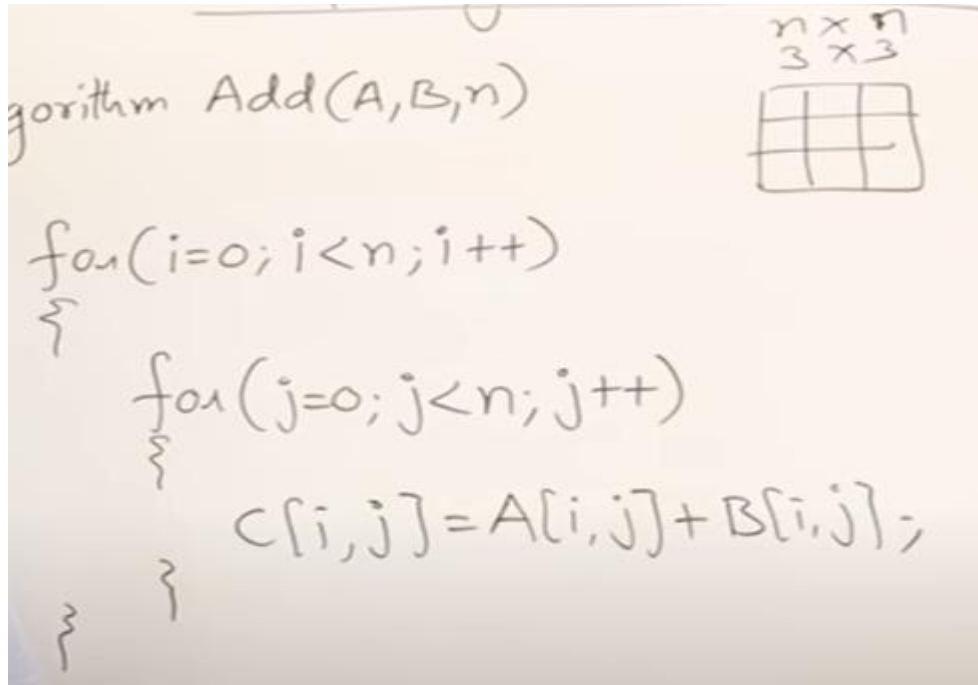 n × n
3 × 3
gorithm Add(A,B,n)
for(i=0; i<n; i++)
{
for(j=0; j<n; j++)
{
C[i,j]=A[i,j]+B[i,j];
}
}